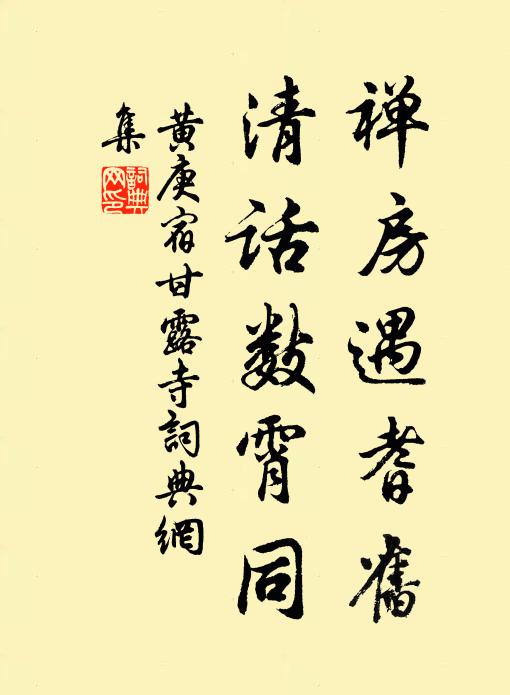 禅房遇耆舊
清话数霄同
黄庚宿甘露寺詞典網
集
詞典網印